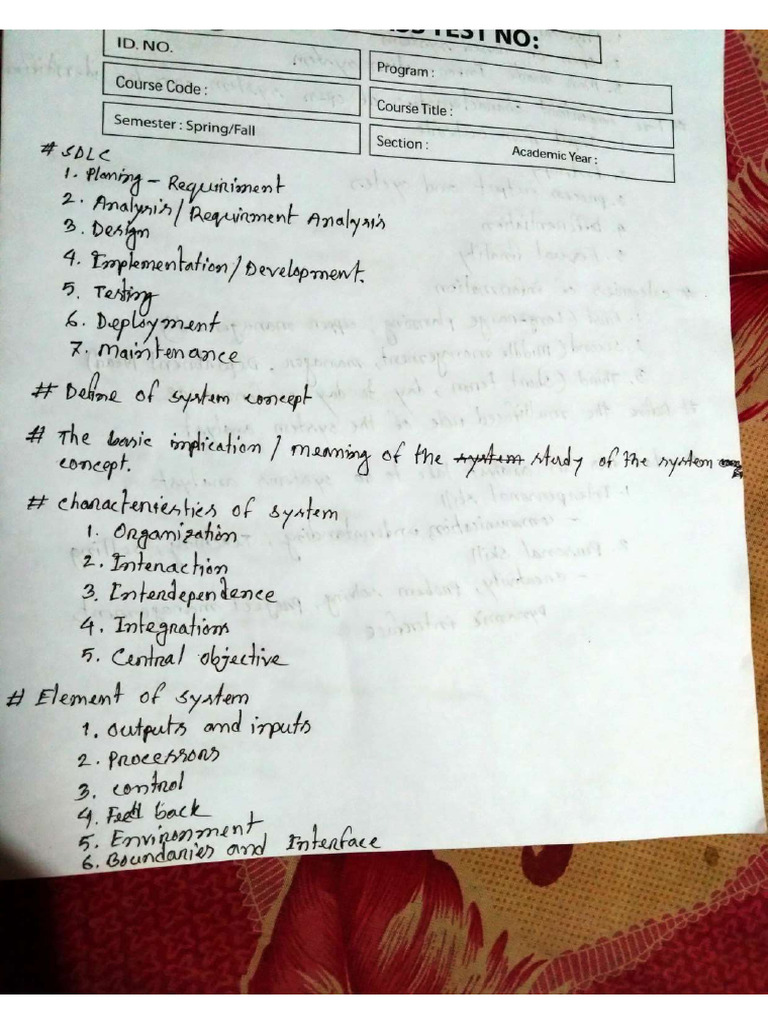 TEST NO:
ID. NO.
Program :
Course Code :
Course Title :
Semester : Spring/Fall
Section :
Academic Year :
# SDLC
1. Planing - Requiriment
2. Analysis / Requirment Analysis
3. Design
4. Implementation / Development.
5. Testing
6. Deployment
7. Maintenance
# Define of system concept
# The basic implication / meaning of the system study of the system
concept.
# Characteriesties of system
1. Organization
2. Interaction
3. Interdependence
4. Integrations
5. Central Objective
# Element of system
1. Outputs and inputs
2. Processors
3. Control
4. Feed back
5. Environment
6. Boundaries and Interface